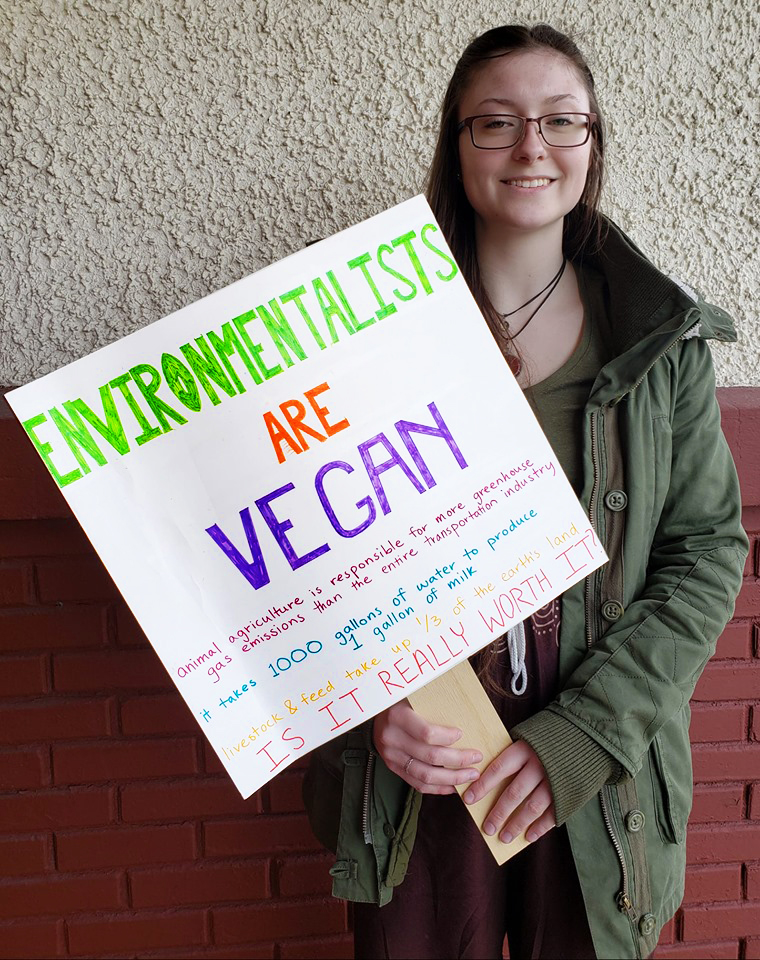 ENVIRONMENTALISTS
ARE
VEGAN
animal agriculture is responsible for more greenhouse
gas emissions than the entire transportation industry
it takes 1000 gallons of water to produce
1 gallon of milk
livestock & feed take up 1/3 of the earth's land
IS IT REALLY WORTH IT?